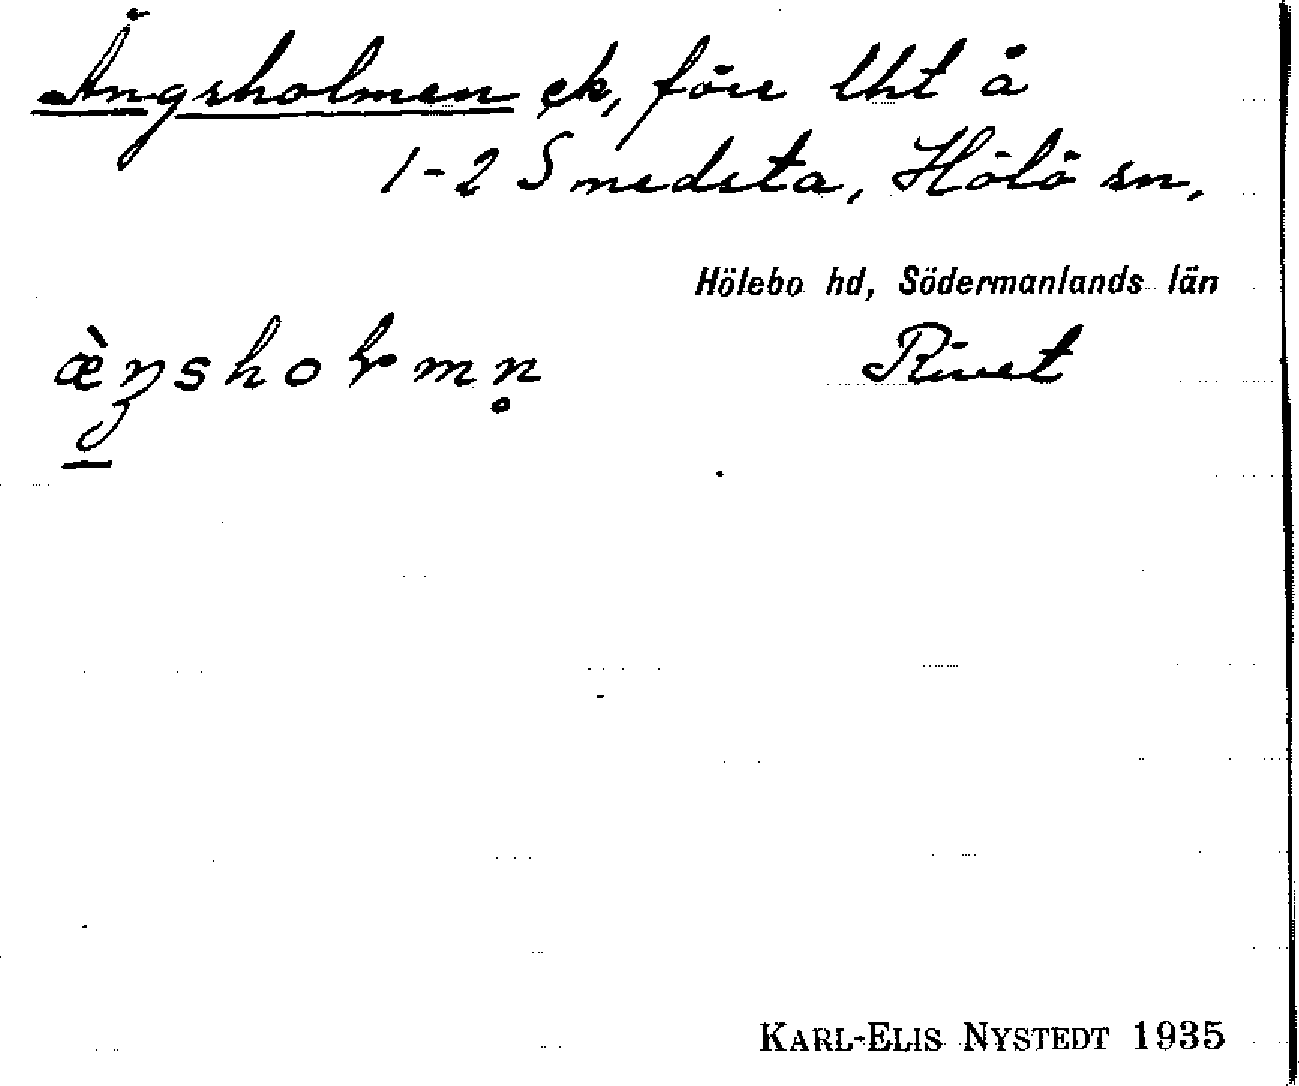 Ängsholmen ek, förr lht å
1-2 Smedsta, Hölö sn,
Hölebo hd, Södermanlands län
æ̀ŋsholmn̥
Rivet
KARL-ELIS NYSTEDT 1935